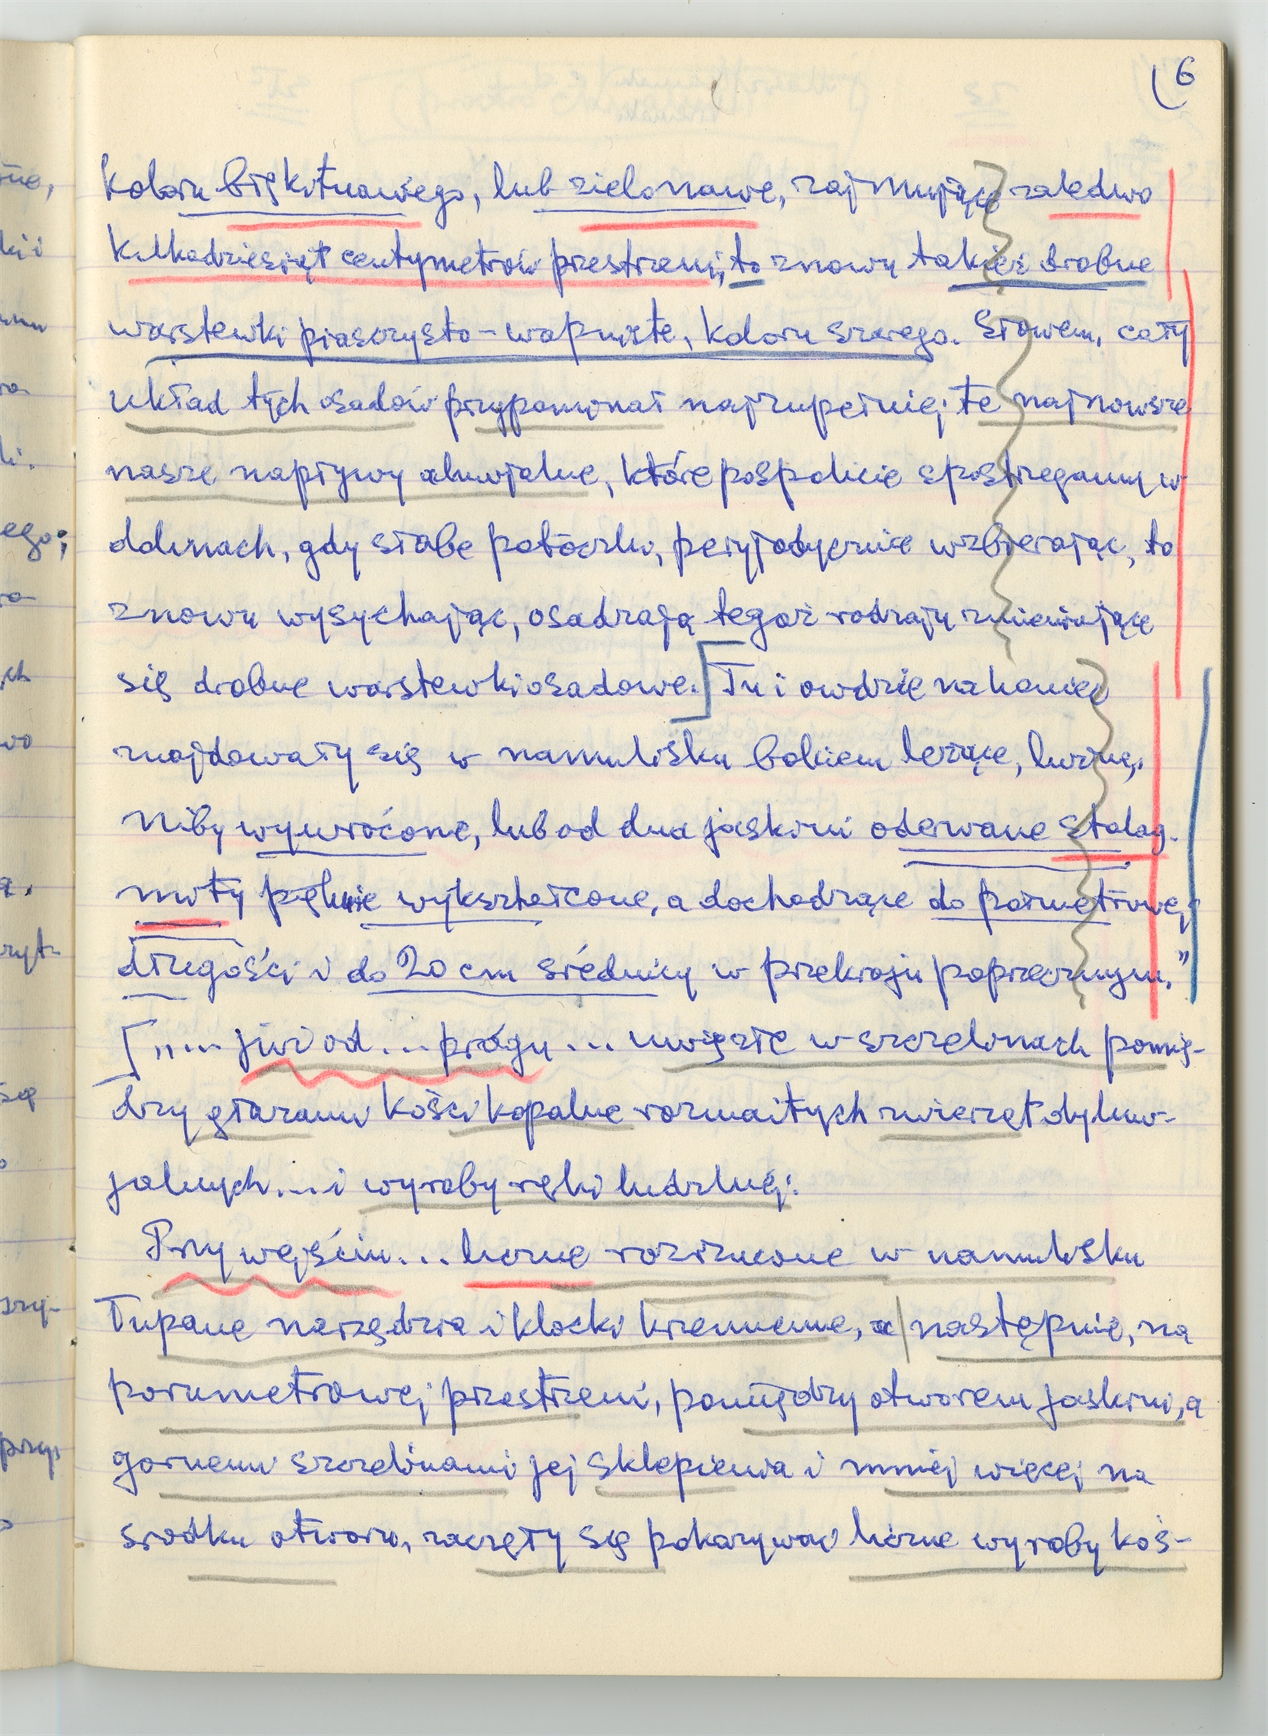 6
koloru błękitnawego, lub zielonawe, zajmujące zaledwo
kilkadziesiąt centymetrów przestrzeni; to znowu takież drobne
warstewki piasczysto-wapniste, koloru szarego. Słowem, cały
układ tych osadów przypominał najzupełniej te najnowsze
nasze napływy aluwjalne, które pospolicie spostrzegamy w
dolinach, gdy słabe potoczki, peryjodycznie wzbierając, to
znowu wysychając, osadzają tegoż rodzaju zmieniające
się drobne warstewki osadowe. Tu i owdzie nakoniec
znajdowały się w namulisku bokiem leżące, luźne,
niby wywrócone, lub od dna jaskini oderwane stalag-
mity pięknie wykształcone, a dochodzące do półmetrowej
długości i do 20 cm średnicy w przekroju poprzecznym."
„... już od ... progu ... uwięzłe w szczelinach pomię-
dzy głazami kości kopalne rozmaitych zwierząt dyluw-
jalnych ... i wyroby ręki ludzkiej:
Przy wejściu ... liczne rozrzucone w namulisku
łupane narzędzia i klocki krzemienne, a następnie, na
parumetrowej przestrzeni, pomiędzy otworem jaskini, a
górnemi szczelinami jej sklepienia i mniej więcej na
środku otworu, zaczęły się pokazywać liczne wyroby koś-